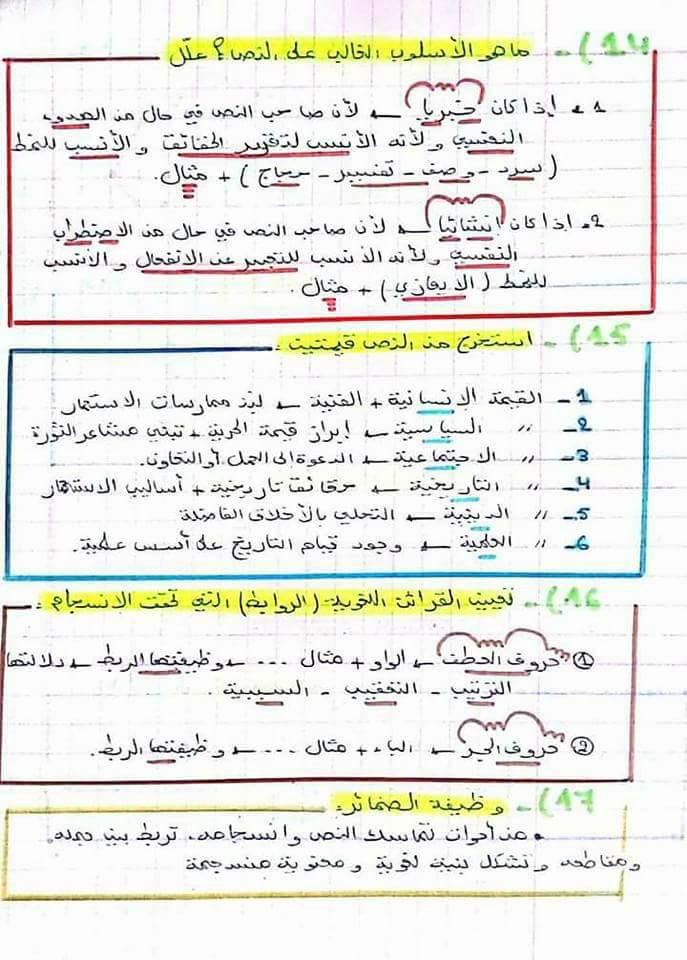 14) - ما هو الأسلوب الغالب على النص؟ علّل
1 - إذا كان خبريا ← لأن صاحب النص في حال من الهدوء
النفسي ولأنه الأنسب لتقرير الحقائق والأنسب للنمط
(سرد - وصف - تفسير - حجاج) + مثال.
2 - إذا كان إنشائيا ← لأن صاحب النص في حال من الاضطراب
النفسي ولأنه الأنسب للتعبير عن الانفعال والأنسب
للنمط (الايعازي) + مثال.
15) - استخرج من النص قيمتين
1 - القيمة الإنسانية + الفنية ← نبذ ممارسات الاستعمار
2 - " السياسية ← إبراز قيمة الحرية + تبني مشاعر الثورة
3 - " الاجتماعية ← الدعوة إلى العمل أو التعاون.
4 - " التاريخية ← حقائق تاريخية + أساليب الاستعمار
5 - " الدينية ← التحلي بالأخلاق الفاضلة
6 - " العلمية ← وجود قيام التاريخ على أسس علمية.
16) - تعيين القرائن اللغوية (الروابط) التي حققت الانسجام:
① حروف العطف ← الواو + مثال ... ← وظيفتها الربط ← دلالتها
الترتيب - التعقيب - السببية.
② حروف الجر ← الباء + مثال ... ← وظيفتها الربط.
17) - وظيفة الضمائر:
• من أدوات تماسك النص وانسجامه، تربط بين جمله
ومقاطعه وتشكل بنية لغوية ومحتوية منسجمة